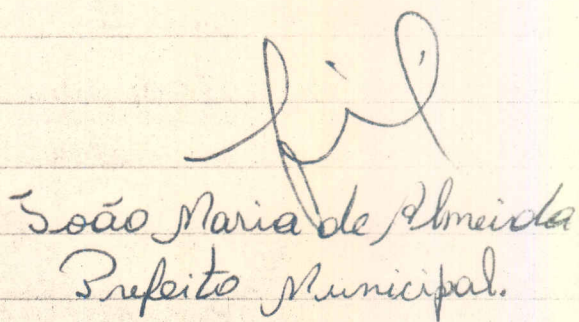 João Maria de Almeida
Prefeito Municipal.